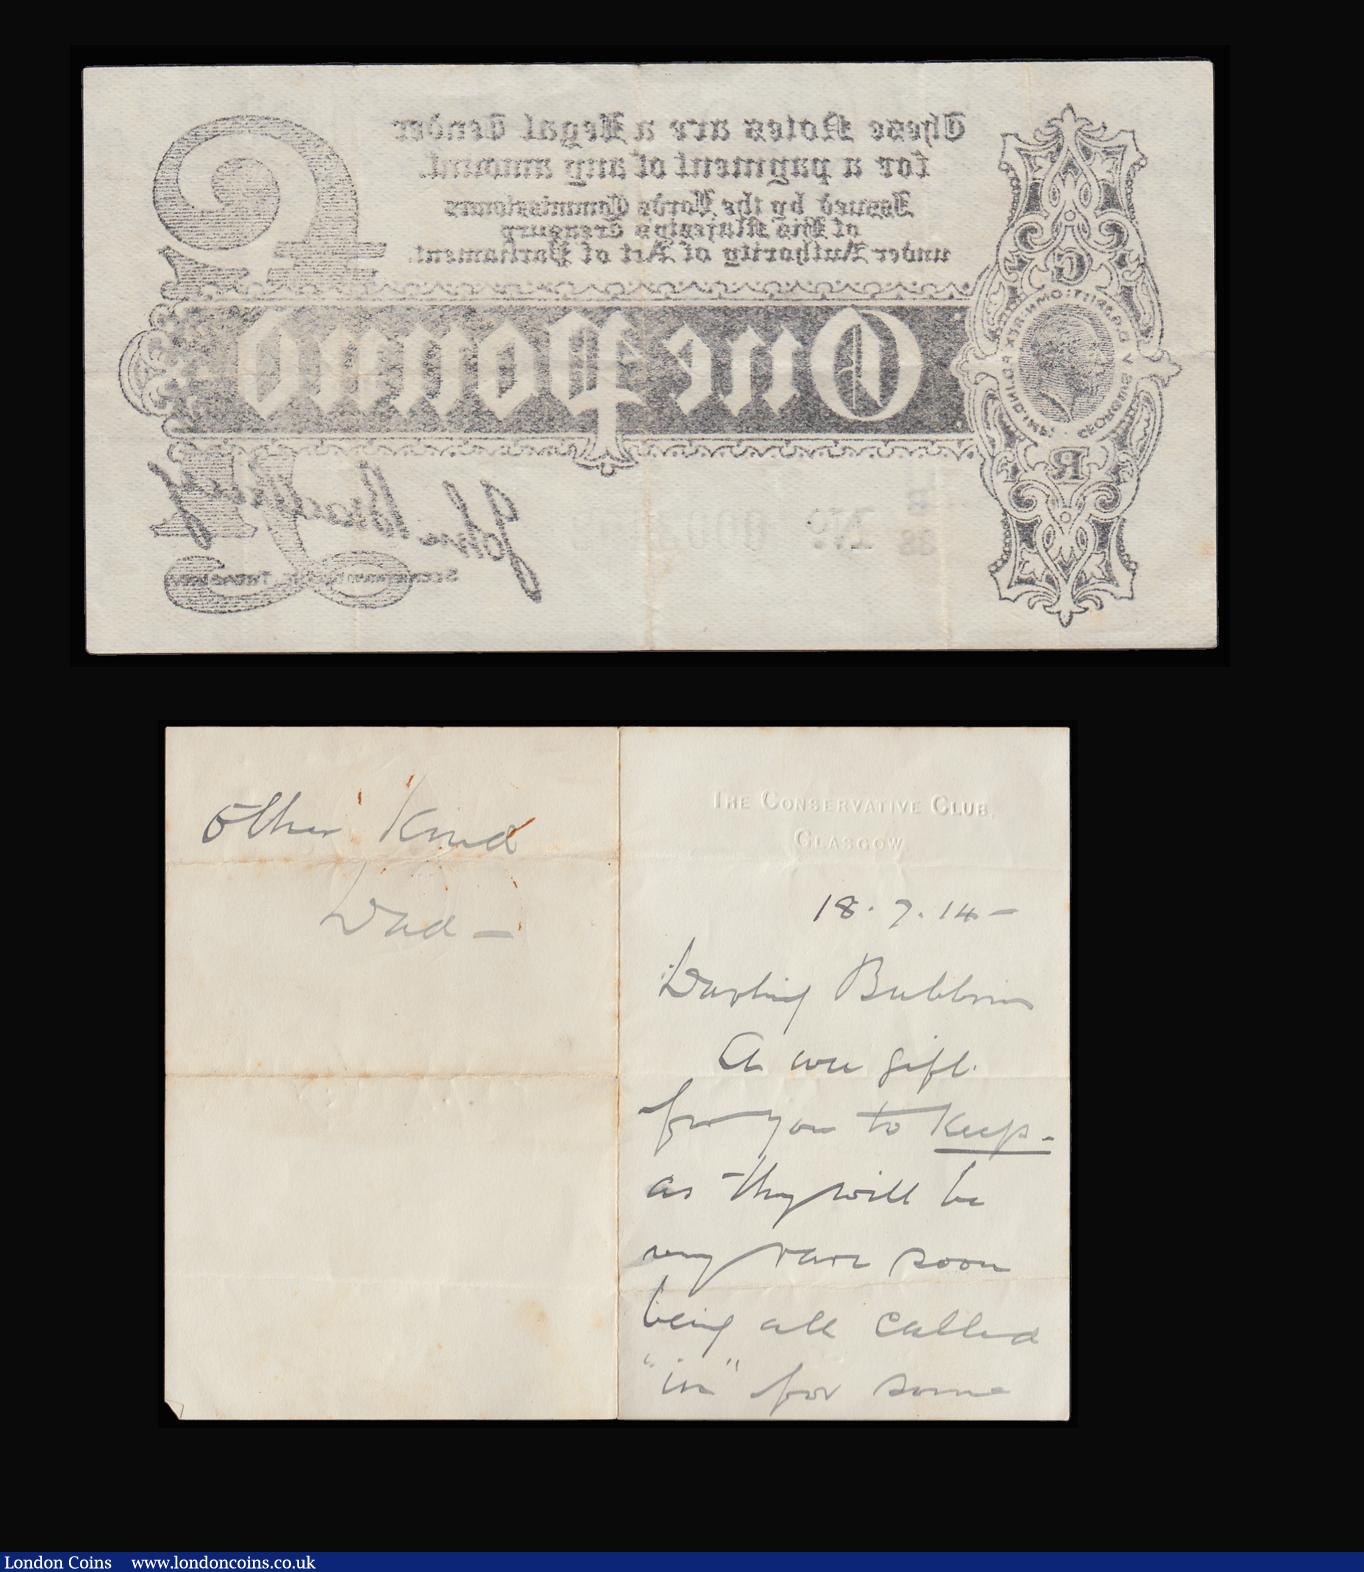 These Notes are a Legal Tender
for a payment of any amount.
Issued by the Lords Commissioners
of His Majesty's Treasury
under Authority of Act of Parliament.
One Pound
£1
G
GEORGIVS V D.G.BRITT:OMN:REX F.D.IND:IMP.
R
John Bradbury
Secretary to the Treasury.
No
other kind
Dad —
THE CONSERVATIVE CLUB,
GLASGOW
18.7.14 —
Darling Bubbins
A wee gift
for you to keep -
as they will be
very rare soon
being all called
"in" for some
London Coins www.londoncoins.co.uk